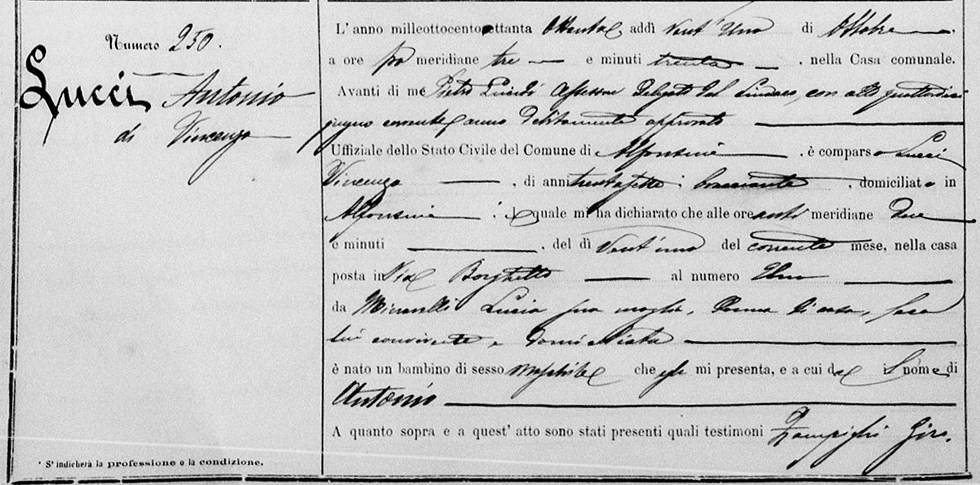 Numero 250.
Lucci Antonio
di Vincenzo
* S'indicherà la professione o la condizione.
L'anno milleottocentottanta addì Vent'Uno di Ottobre
a ore po meridiane tre e minuti trenta, nella Casa comunale.
Avanti di me Pietro Assessore Delegato dal Sindaco, con atto quattordici
giugno corrente anno debitamente approvato
Uffiziale dello Stato Civile del Comune di Alfonsine, è comparso Lucci
Vincenzo, di anni trentasette, bracciante, domiciliato in
Alfonsine, il quale mi ha dichiarato che alle ore anti meridiane Due
e minuti, del dì Vent'uno del corrente mese, nella casa
posta in Via Borghetto al numero
da Lucia sua moglie, Donna di casa, seco
lui convivente e domiciliata
è nato un bambino di sesso maschile che egli mi presenta, e a cui dà il nome di
Antonio
A quanto sopra e a quest'atto sono stati presenti quali testimoni